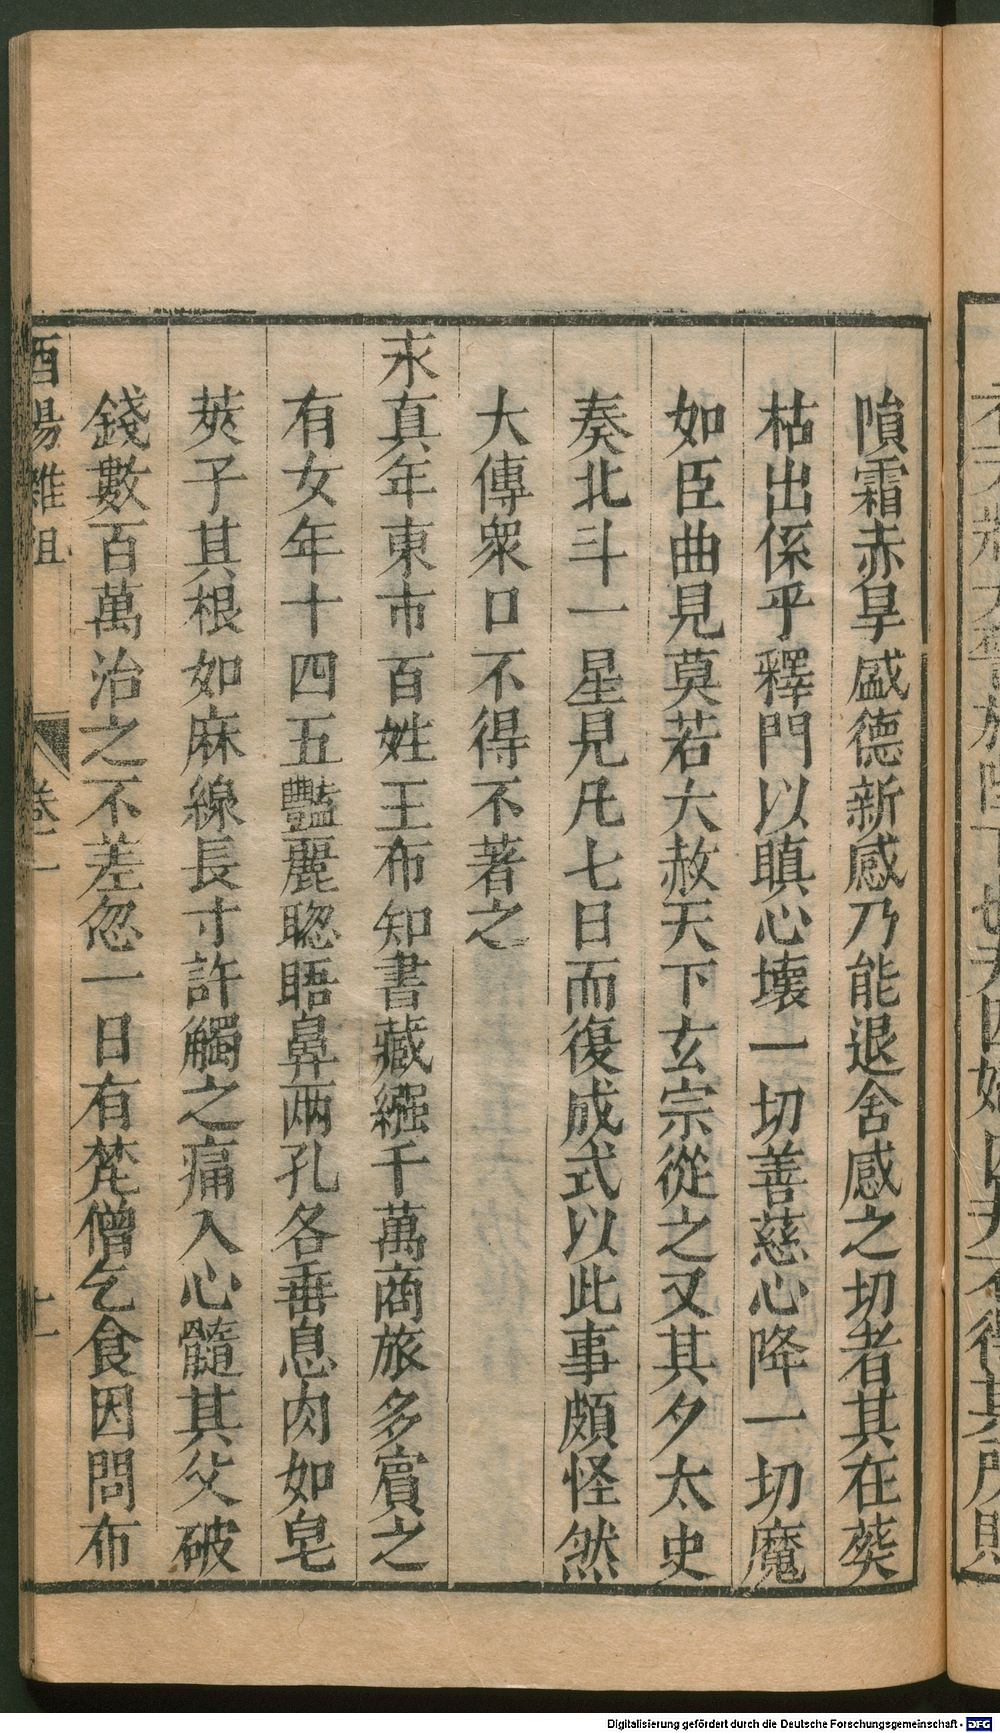 隕霜赤旱盛德新感乃能退舍感之切者其在葬
枯出係乎釋門以瞋心壞一切善慈心降一切魔
如臣曲見莫若大赦天下玄宗從之又其夕太史
奏北斗一星見凡七日而復成式以此事頗怪然
大傳衆口不得不著之
永真年東市百姓王布知書藏繦千萬商旅多賓之
有女年十四五艷麗聦晤鼻兩孔各垂息肉如皂
莢子其根如麻線長寸許觸之痛入心髓其父破
錢數百萬治之不差忽一日有梵僧乞食因問布
酉陽雜俎 卷一 十一
Digitalisierung gefördert durch die Deutsche Forschungsgemeinschaft - DFG